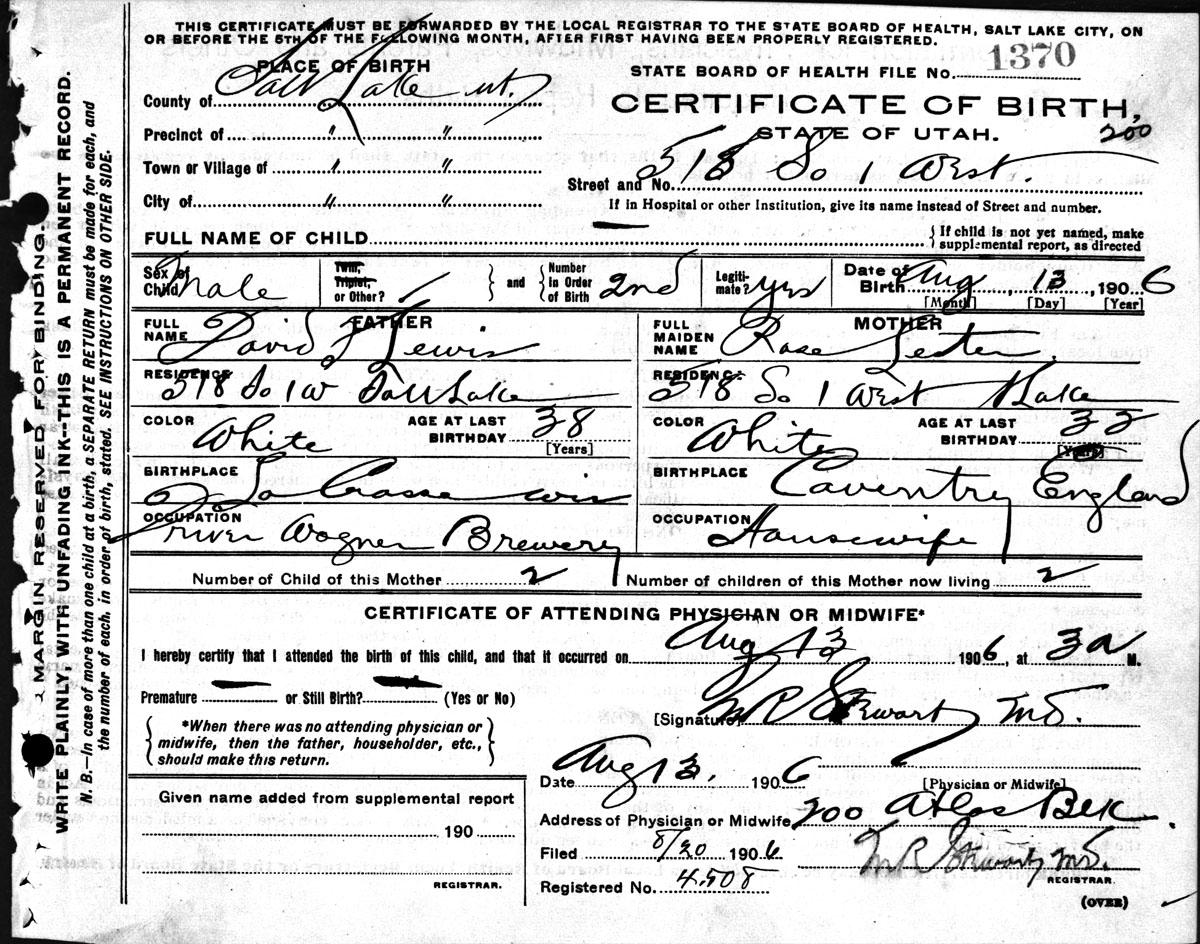 THIS CERTIFICATE MUST BE FORWARDED BY THE LOCAL REGISTRAR TO THE STATE BOARD OF HEALTH, SALT LAKE CITY, ON
OR BEFORE THE 5TH OF THE FOLLOWING MONTH, AFTER FIRST HAVING BEEN PROPERLY REGISTERED.
PLACE OF BIRTH
STATE BOARD OF HEALTH FILE No. 1370
County of Salt Lake ut.
CERTIFICATE OF BIRTH,
STATE OF UTAH.
200
Precinct of " "
Town or Village of " "
Street and No. 518 So 1 West.
City of " "
If in Hospital or other Institution, give its name instead of Street and number.
FULL NAME OF CHILD
If child is not yet named, make
supplemental report, as directed
Sex of Child Male
Twin, Triplet, or Other? 1 and Number in Order of Birth 2nd
Legitimate? yes
Date of Birth Aug 13 1906
[Month] [Day] [Year]
FATHER
FULL NAME David J Lewis
MOTHER
FULL MAIDEN NAME Rose Lester
RESIDENCE 518 So 1 W Salt Lake
RESIDENCE 518 So 1 West S Lake
COLOR White AGE AT LAST BIRTHDAY 38 [Years]
COLOR White AGE AT LAST BIRTHDAY 32 [Years]
BIRTHPLACE La Crosse wis
BIRTHPLACE Caventry England
OCCUPATION Driver Wagner Brewery
OCCUPATION Housewife
Number of Child of this Mother 2 Number of children of this Mother now living 2
CERTIFICATE OF ATTENDING PHYSICIAN OR MIDWIFE*
I hereby certify that I attended the birth of this child, and that it occurred on Aug 13 1906, at 3 a M.
Premature or Still Birth? (Yes or No)
[Signature] M R Stewart MD.
*When there was no attending physician or
midwife, then the father, householder, etc.,
should make this return.
Date Aug 13, 1906
[Physician or Midwife]
Given name added from supplemental report
190
REGISTRAR.
Address of Physician or Midwife 200 Atlas Blk.
Filed 8/20 1906 M R Stewart MD.
REGISTRAR.
Registered No. 4508
(OVER)
MARGIN RESERVED FOR BINDING.
WRITE PLAINLY, WITH UNFADING INK--THIS IS A PERMANENT RECORD.
N. B.—In case of more than one child at a birth, a SEPARATE RETURN must be made for each, and
the number of each, in order of birth, stated. SEE INSTRUCTIONS ON OTHER SIDE.